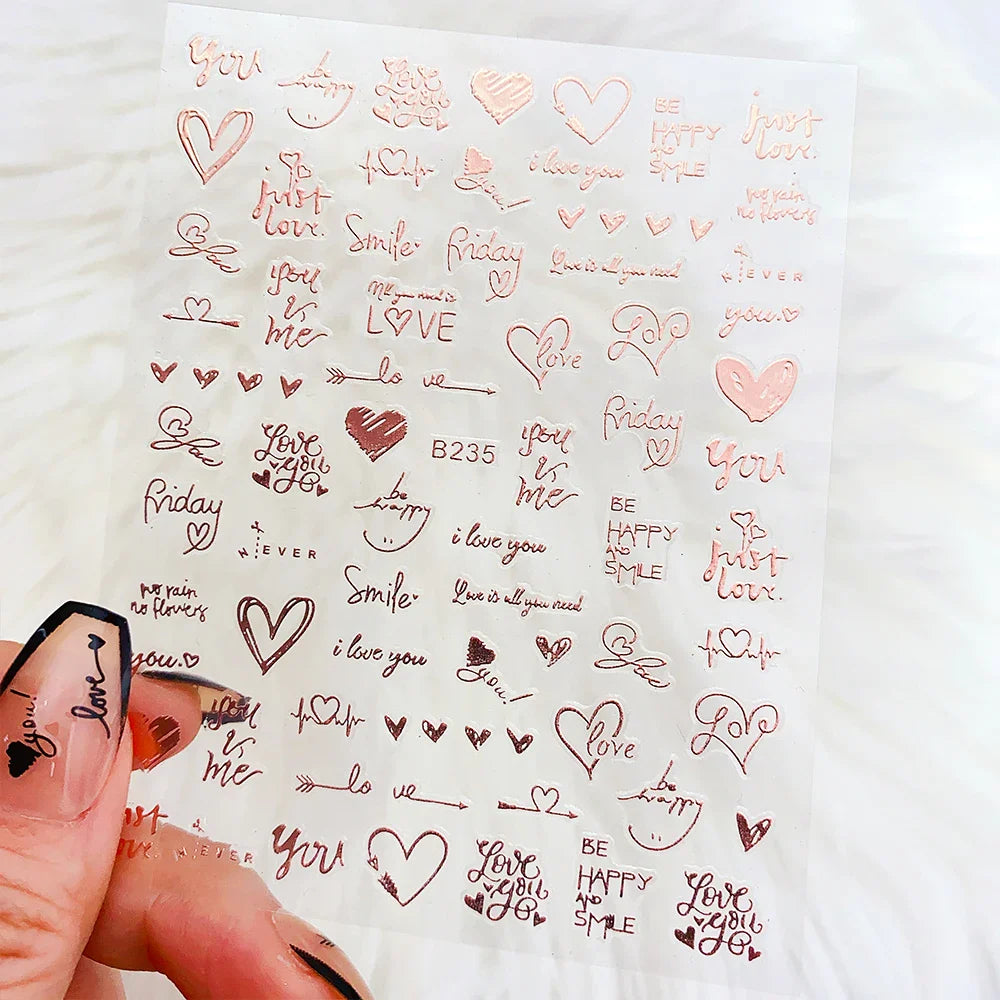 you
be
happy
Love
you
BE
HAPPY
AND
SMILE
just
love.
i love you
you!
no rain
no flowers
just
love.
Smile
friday
Love is all you need
NEVER
you
&
me
All you need is
LOVE
love
love
you.
lo ve
friday
B235
you
&
me
you
Love
you
be
happy
friday
NEVER
i love you
BE
HAPPY
AND
SMILE
just
love.
no rain
no flowers
Smile
Love is all you need
you.
i love you
you!
love
you!
you
&
me
love
love
lo ve
be
happy
just
love.
NEVER
you
Love
you
BE
HAPPY
AND
SMILE
Love
you